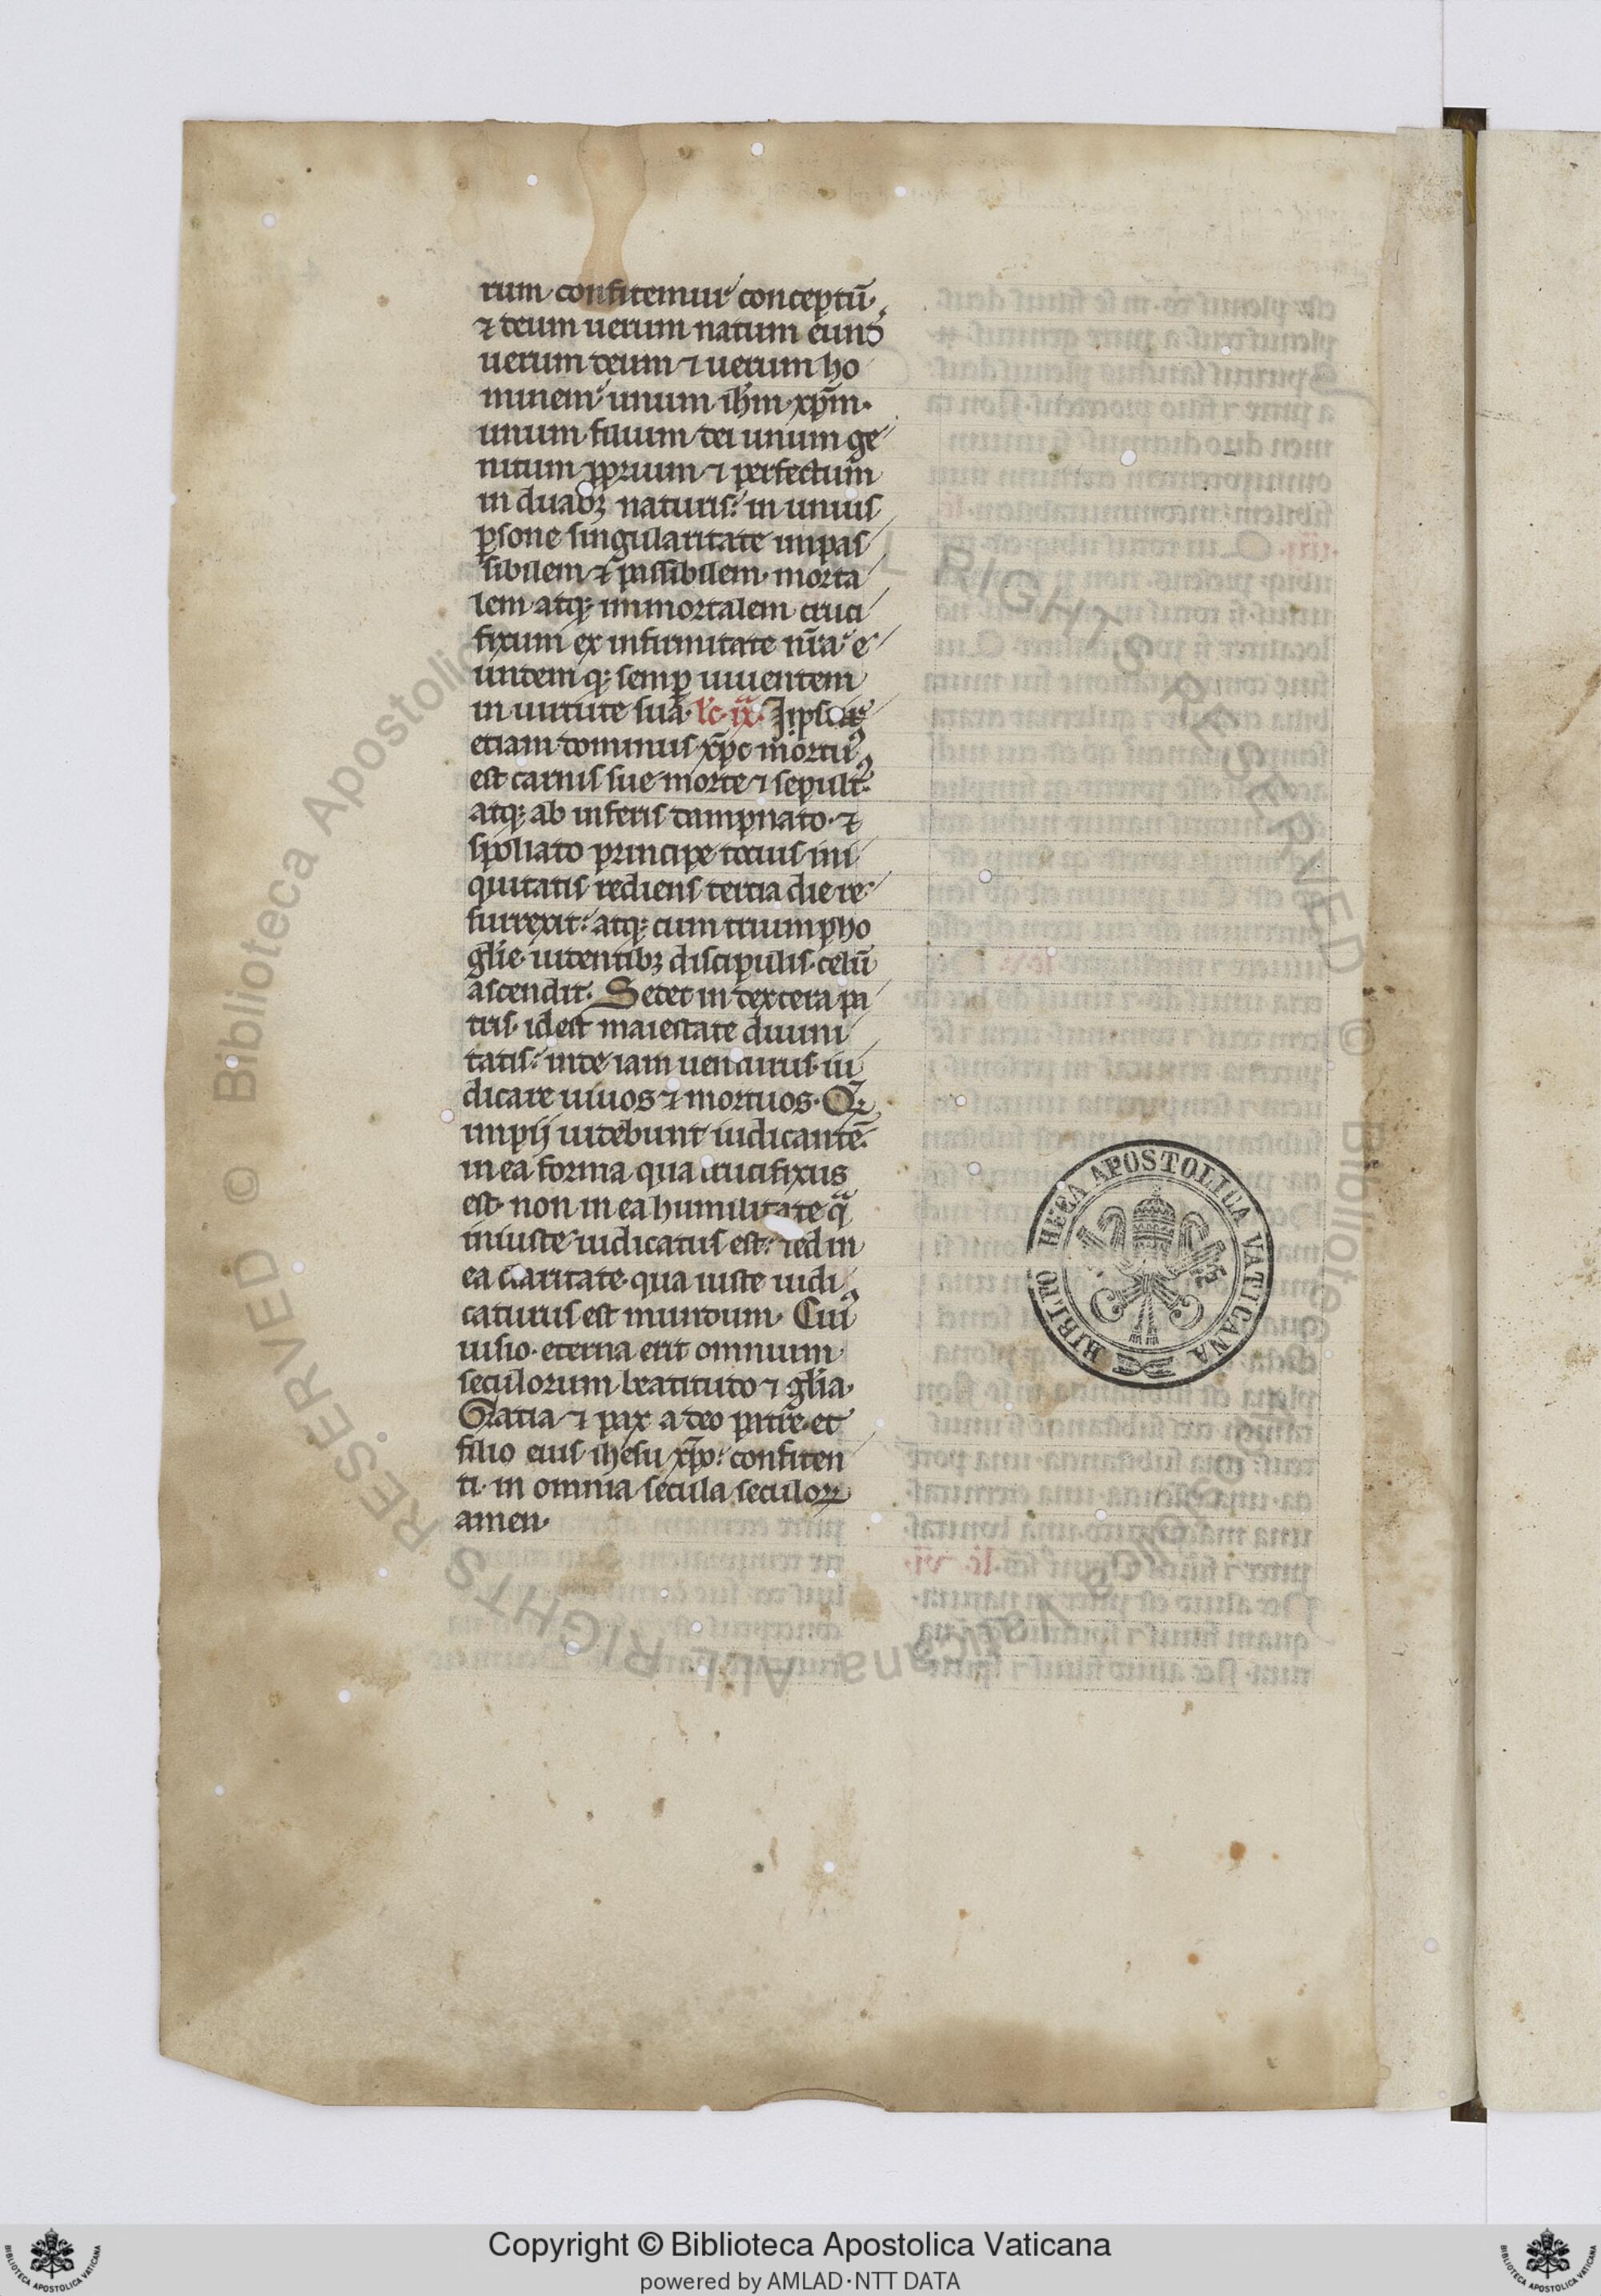 rum confitemur conceptū.
⁊ deum uerum natum eund
uerum deum ⁊ uerum ho
minem unum ihm xp̄m.
unum filium dei unum ge
nitum ꝓprium ⁊ perfectum
in duabꝫ naturis: in unius
ꝑsone singularitate inpas
sibilem ⁊ passibilem. morta
lem atqꝫ immortalem cruci
fixum ex infirmitate nr̄a e
undem qꝫ semꝑ uiuentem
in uirtute sua. lc̄. ix.
etiam dominus xp̄c mortuꝰ
est carnis sue morte ⁊ sepult
atqꝫ ab inferis dampnato. ⁊
spoliato principe tocius ini
quitatis rediens tercia die re
surrexit: atqꝫ cum triumpho
glīe uidentibꝫ discipulis. celū
ascendit. Sedet in dextera pa
tris. idest maiestate diuini
tatis: inde iam uenturus iu
dicare uiuos ⁊ mortuos. Qꝫ
impij uidebunt iudicantē.
in ea forma qua crucifixus
est. non in ea humilitate qͣ
iniuste iudicatus est: sed in
ea claritate. qua iuste iudi
caturus est mundum. Cuiꝰ
uisio. eterna erit omnium
seculorum beatitudo ⁊ glīa.
Gratia ⁊ pax a deo patre. et
filio eius ihesu xp̄o: confiten
ti. in omnia secula seculoꝝ
amen.
BIBLIOTHECA APOSTOLICA VATICANA
© Biblioteca Apostolica Vaticana ALL RIGHTS RESERVED
Copyright © Biblioteca Apostolica Vaticana
powered by AMLAD·NTT DATA
BIBLIOTECA APOSTOLICA VATICANA
BIBLIOTECA APOSTOLICA VATICANA